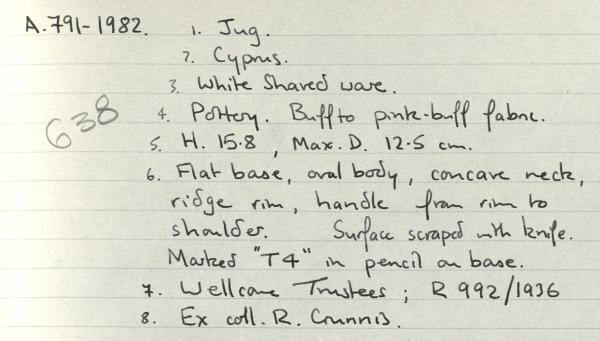 A.791-1982. 1. Jug.
2. Cyprus.
3. White Shaved ware.
638
4. Pottery. Buff to pink-buff fabric.
5. H. 15.8, Max. D. 12.5 cm.
6. Flat base, oval body, concave neck,
ridge rim, handle from rim to
shoulder. Surface scraped with knife.
Marked "T4" in pencil on base.
7. Wellcome Trustees; R 992/1936
8. Ex coll. R. Gunnis.